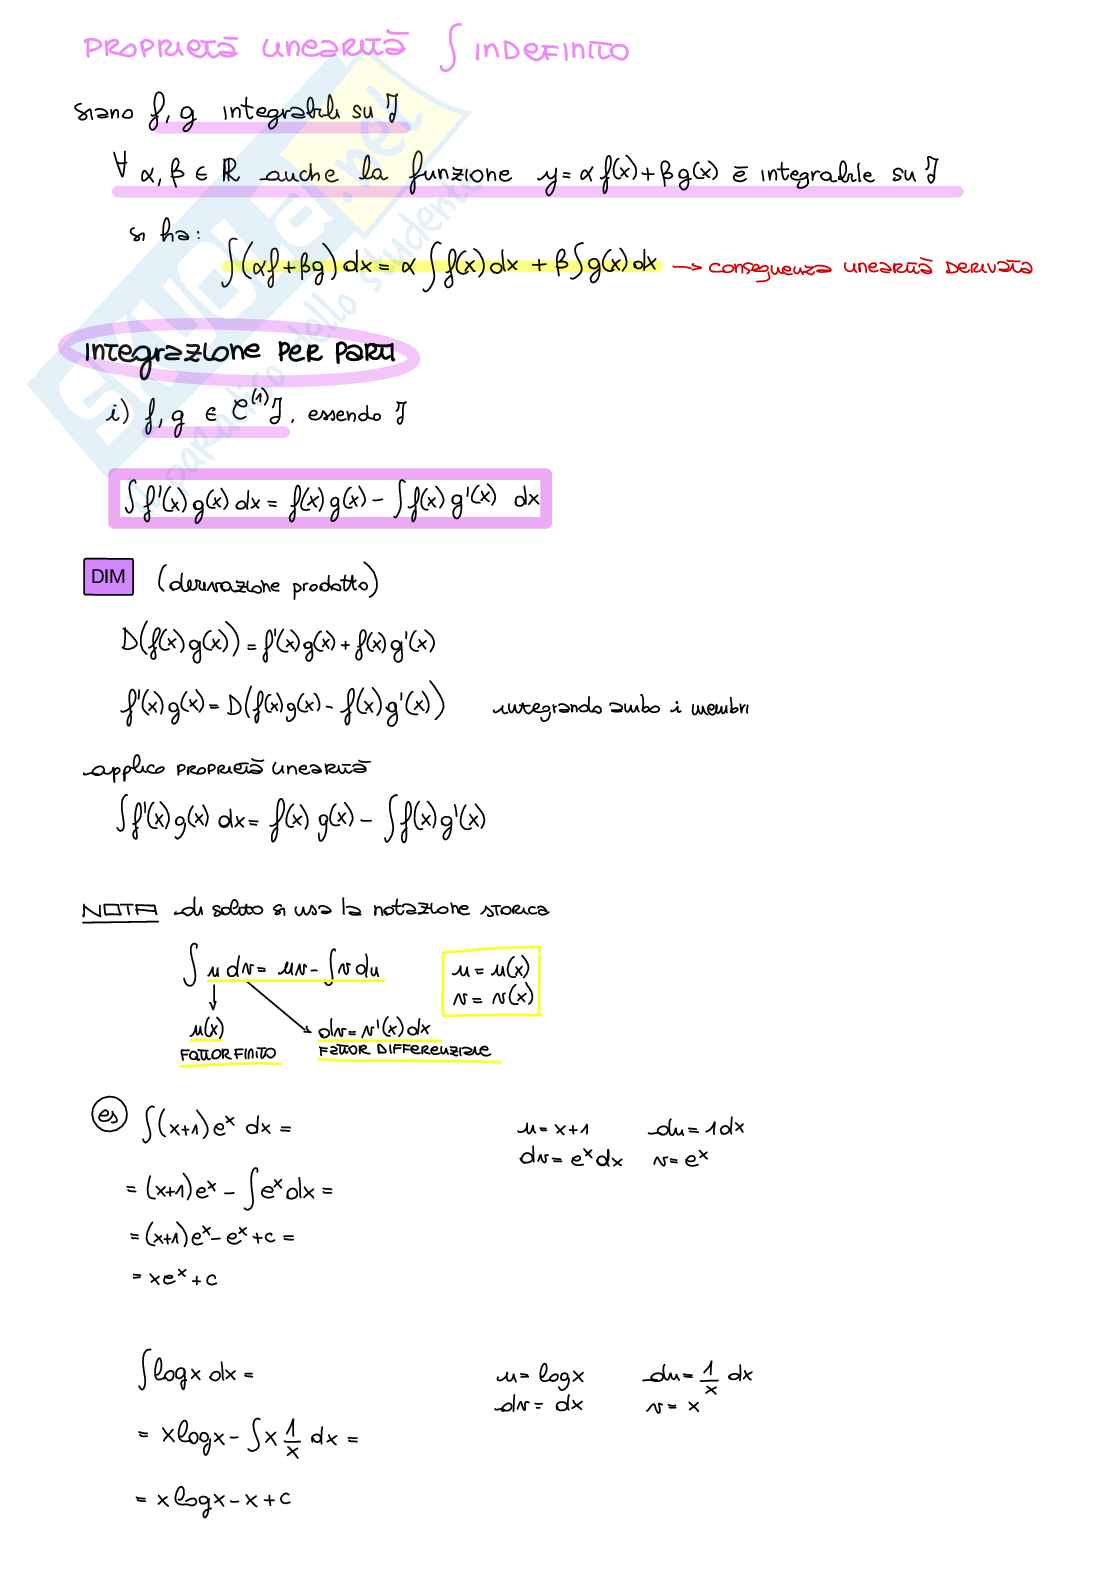 PROPRIETÀ LINEARITÀ ∫ INDEFINITO
siano f, g integrabili su J
∀ α, β ∈ ℝ anche la funzione y = α f(x) + β g(x) è integrabile su J
si ha:
∫(αf + βg) dx = α ∫ f(x) dx + β ∫ g(x) dx → conseguenza linearità derivata
INTEGRAZIONE PER PARTI
i) f, g ∈ C⁽¹⁾J, essendo J
∫ f'(x) g(x) dx = f(x) g(x) − ∫ f(x) g'(x) dx
DIM (derivazione prodotto)
D(f(x) g(x)) = f'(x) g(x) + f(x) g'(x)
f'(x) g(x) = D(f(x) g(x) − f(x) g'(x)) integrando ambo i membri
applico proprietà linearità
∫ f'(x) g(x) dx = f(x) g(x) − ∫ f(x) g'(x)
NOTA di solito si usa la notazione storica
∫ u dv = uv − ∫ v du u = u(x)
v = v(x)
u(x) dv = v'(x) dx
FATTOR FINITO FATTOR DIFFERENZIALE
es ∫(x+1) eˣ dx = u = x+1 du = 1 dx
dv = eˣ dx v = eˣ
= (x+1) eˣ − ∫ eˣ dx =
= (x+1) eˣ − eˣ + c =
= x eˣ + c
∫ log x dx = u = log x du = 1/x dx
dv = dx v = x
= x log x − ∫ x 1/x dx =
= x log x − x + c
SKUOLA.net
il paradiso dello studente